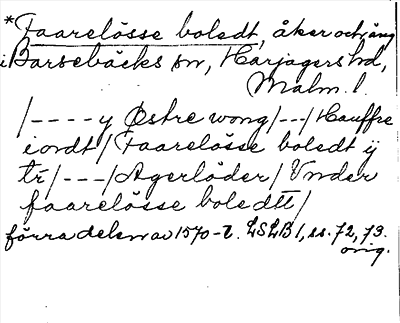 *Faarelösse boledt, åker och äng
i Barsebäcks sn, Harjagers hd,
Malm. l.
/---- y Østre wong/--/Hauffre
iordt/Faarelösse boledt ij
tr/---/Agerlöder/Vnder
faarelösse boledtt/
förra delen av 1570-t. LSLB 1, ss. 72, 73.
orig.